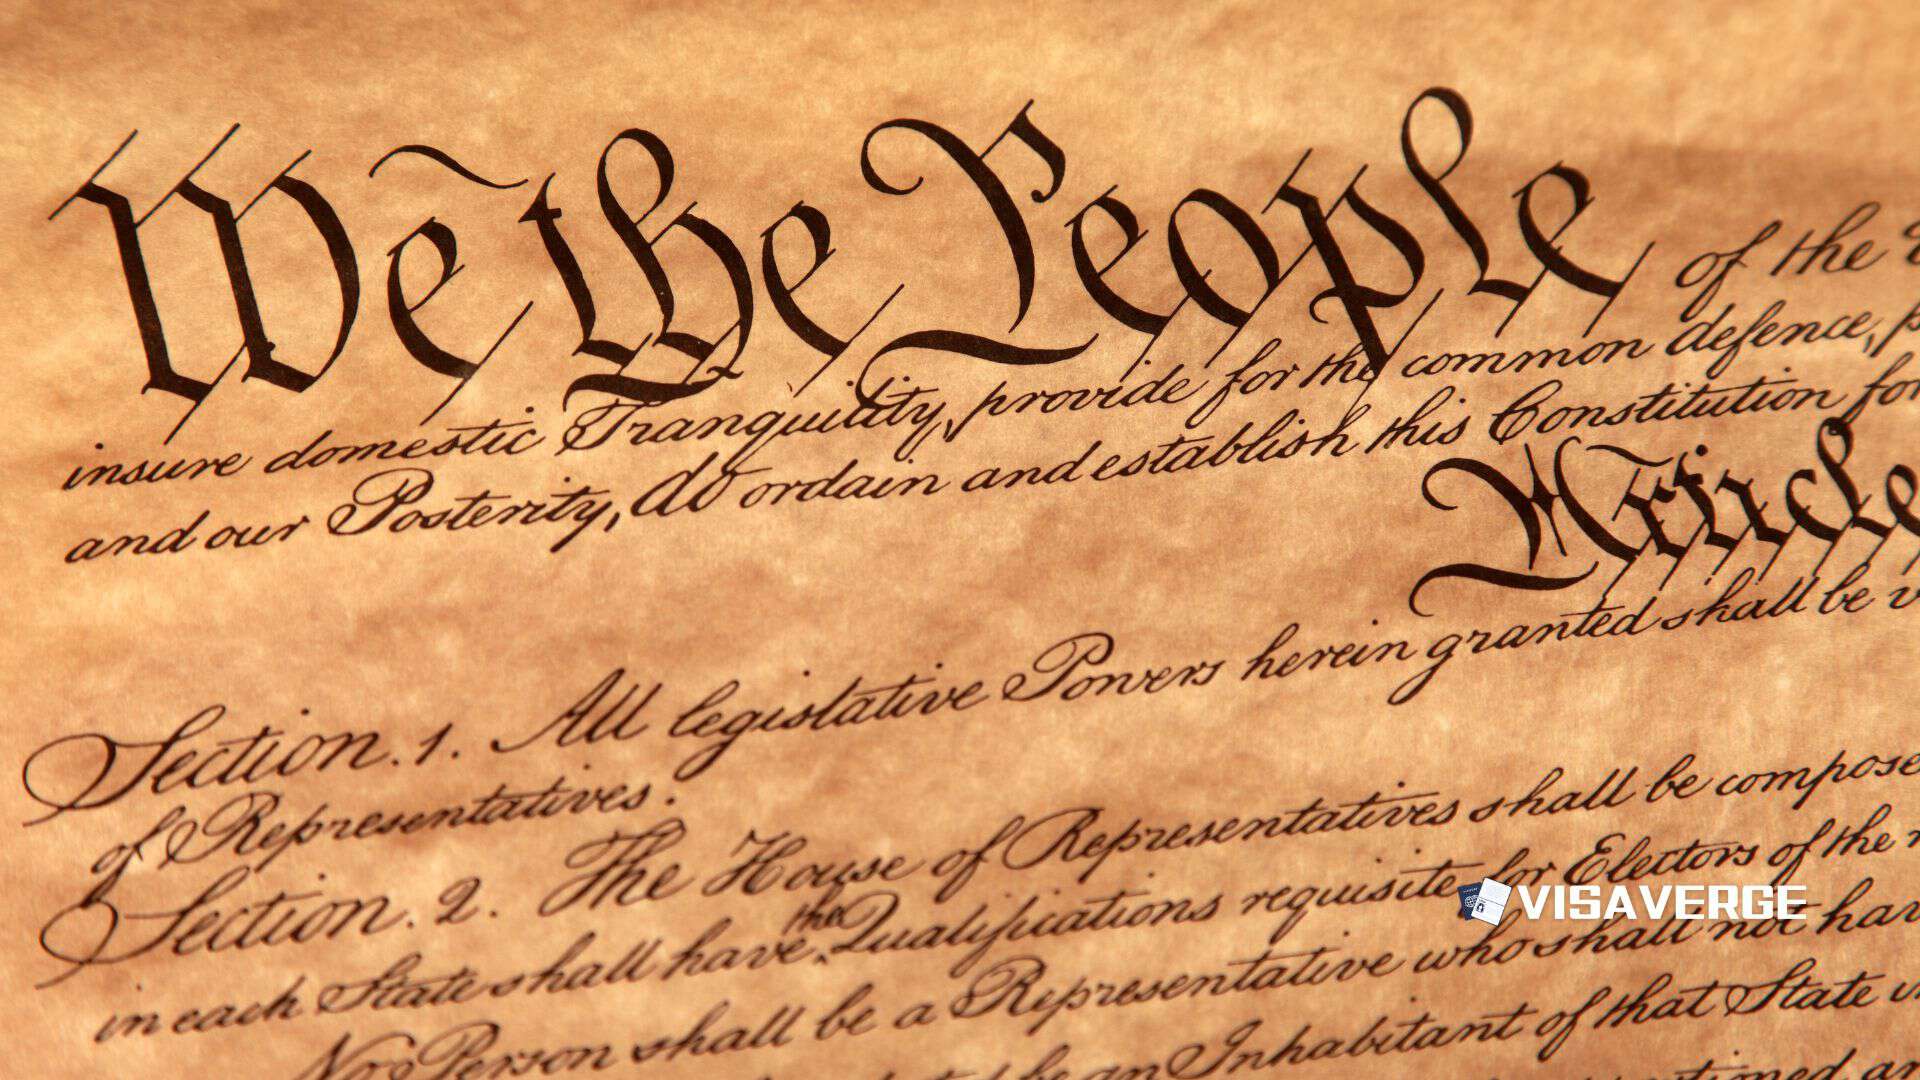 We the People of the
insure domestic Tranquility, provide for the common defence,
and our Posterity, do ordain and establish this Constitution for
Article
Section. 1. All legislative Powers herein granted shall be
of Representatives.
Section. 2. The House of Representatives shall be compose
the
in each State shall have Qualifications requisite for Electors of the
No Person shall be a Representative who shall not have
be an Inhabitant of that State
VISAVERGE